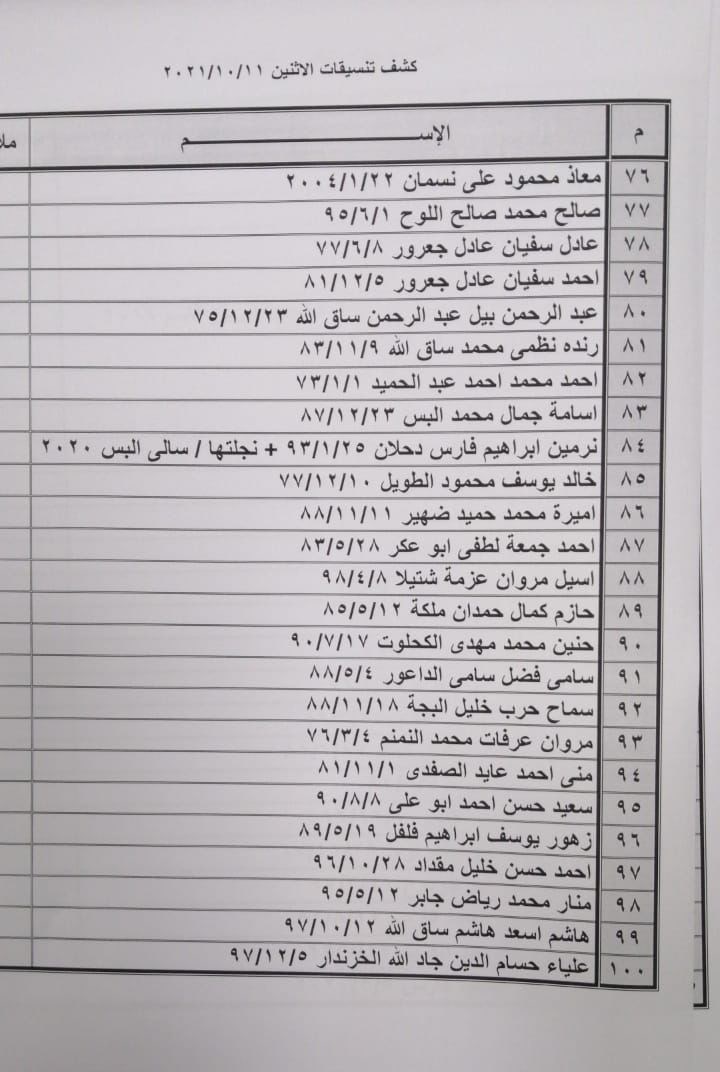 كشف تنسيقات الاثنين ٢٠٢١/١٠/١١
م الإســـــــــم
٧٦ معاذ محمود على نسمان ٢٠٠٤/١/٢٢
٧٧ صالح محمد صالح اللوح ٩٥/٦/١
٧٨ عادل سفيان عادل جعرور ٧٧/٦/٨
٧٩ احمد سفيان عادل جعرور ٨١/١٢/٥
٨٠ عبد الرحمن بيل عبد الرحمن ساق الله ٧٥/١٢/٢٣
٨١ رنده نظمى محمد ساق الله ٨٣/١١/٩
٨٢ احمد محمد احمد عبد الحميد ٧٣/١/١
٨٣ اسامة جمال محمد البس ٨٧/١٢/٢٣
٨٤ نرمين ابراهيم فارس دحلان ٩٣/١/٢٥ + نجلتها / سالى البس ٢٠٢٠
٨٥ خالد يوسف محمود الطويل ٧٧/١٢/١٠
٨٦ اميرة محمد حميد ضهير ٨٨/١١/١١
٨٧ احمد جمعة لطفى ابو عكر ٨٣/٥/٢٨
٨٨ اسيل مروان عزمة شتيلا ٩٨/٤/٨
٨٩ حازم كمال حمدان ملكة ٨٥/٥/١٢
٩٠ حنين محمد مهدى الكحلوت ٩٠/٧/١٧
٩١ سامى فضل سامى الداعور ٨٨/٥/٤
٩٢ سماح حرب خليل البجة ٨٨/١١/١٨
٩٣ مروان عرفات محمد النمنم ٧٦/٣/٤
٩٤ منى احمد عايد الصفدى ٨١/١١/١
٩٥ سعيد حسن احمد ابو على ٩٠/٨/٨
٩٦ زهور يوسف ابراهيم فلفل ٨٩/٥/١٩
٩٧ احمد حسن خليل مقداد ٩٦/١٠/٢٨
٩٨ منار محمد رياض جابر ٩٥/٥/١٢
٩٩ هاشم اسعد هاشم ساق الله ٩٧/١٠/١٢
١٠٠ علياء حسام الدين جاد الله الخزندار ٩٧/١٢/٥